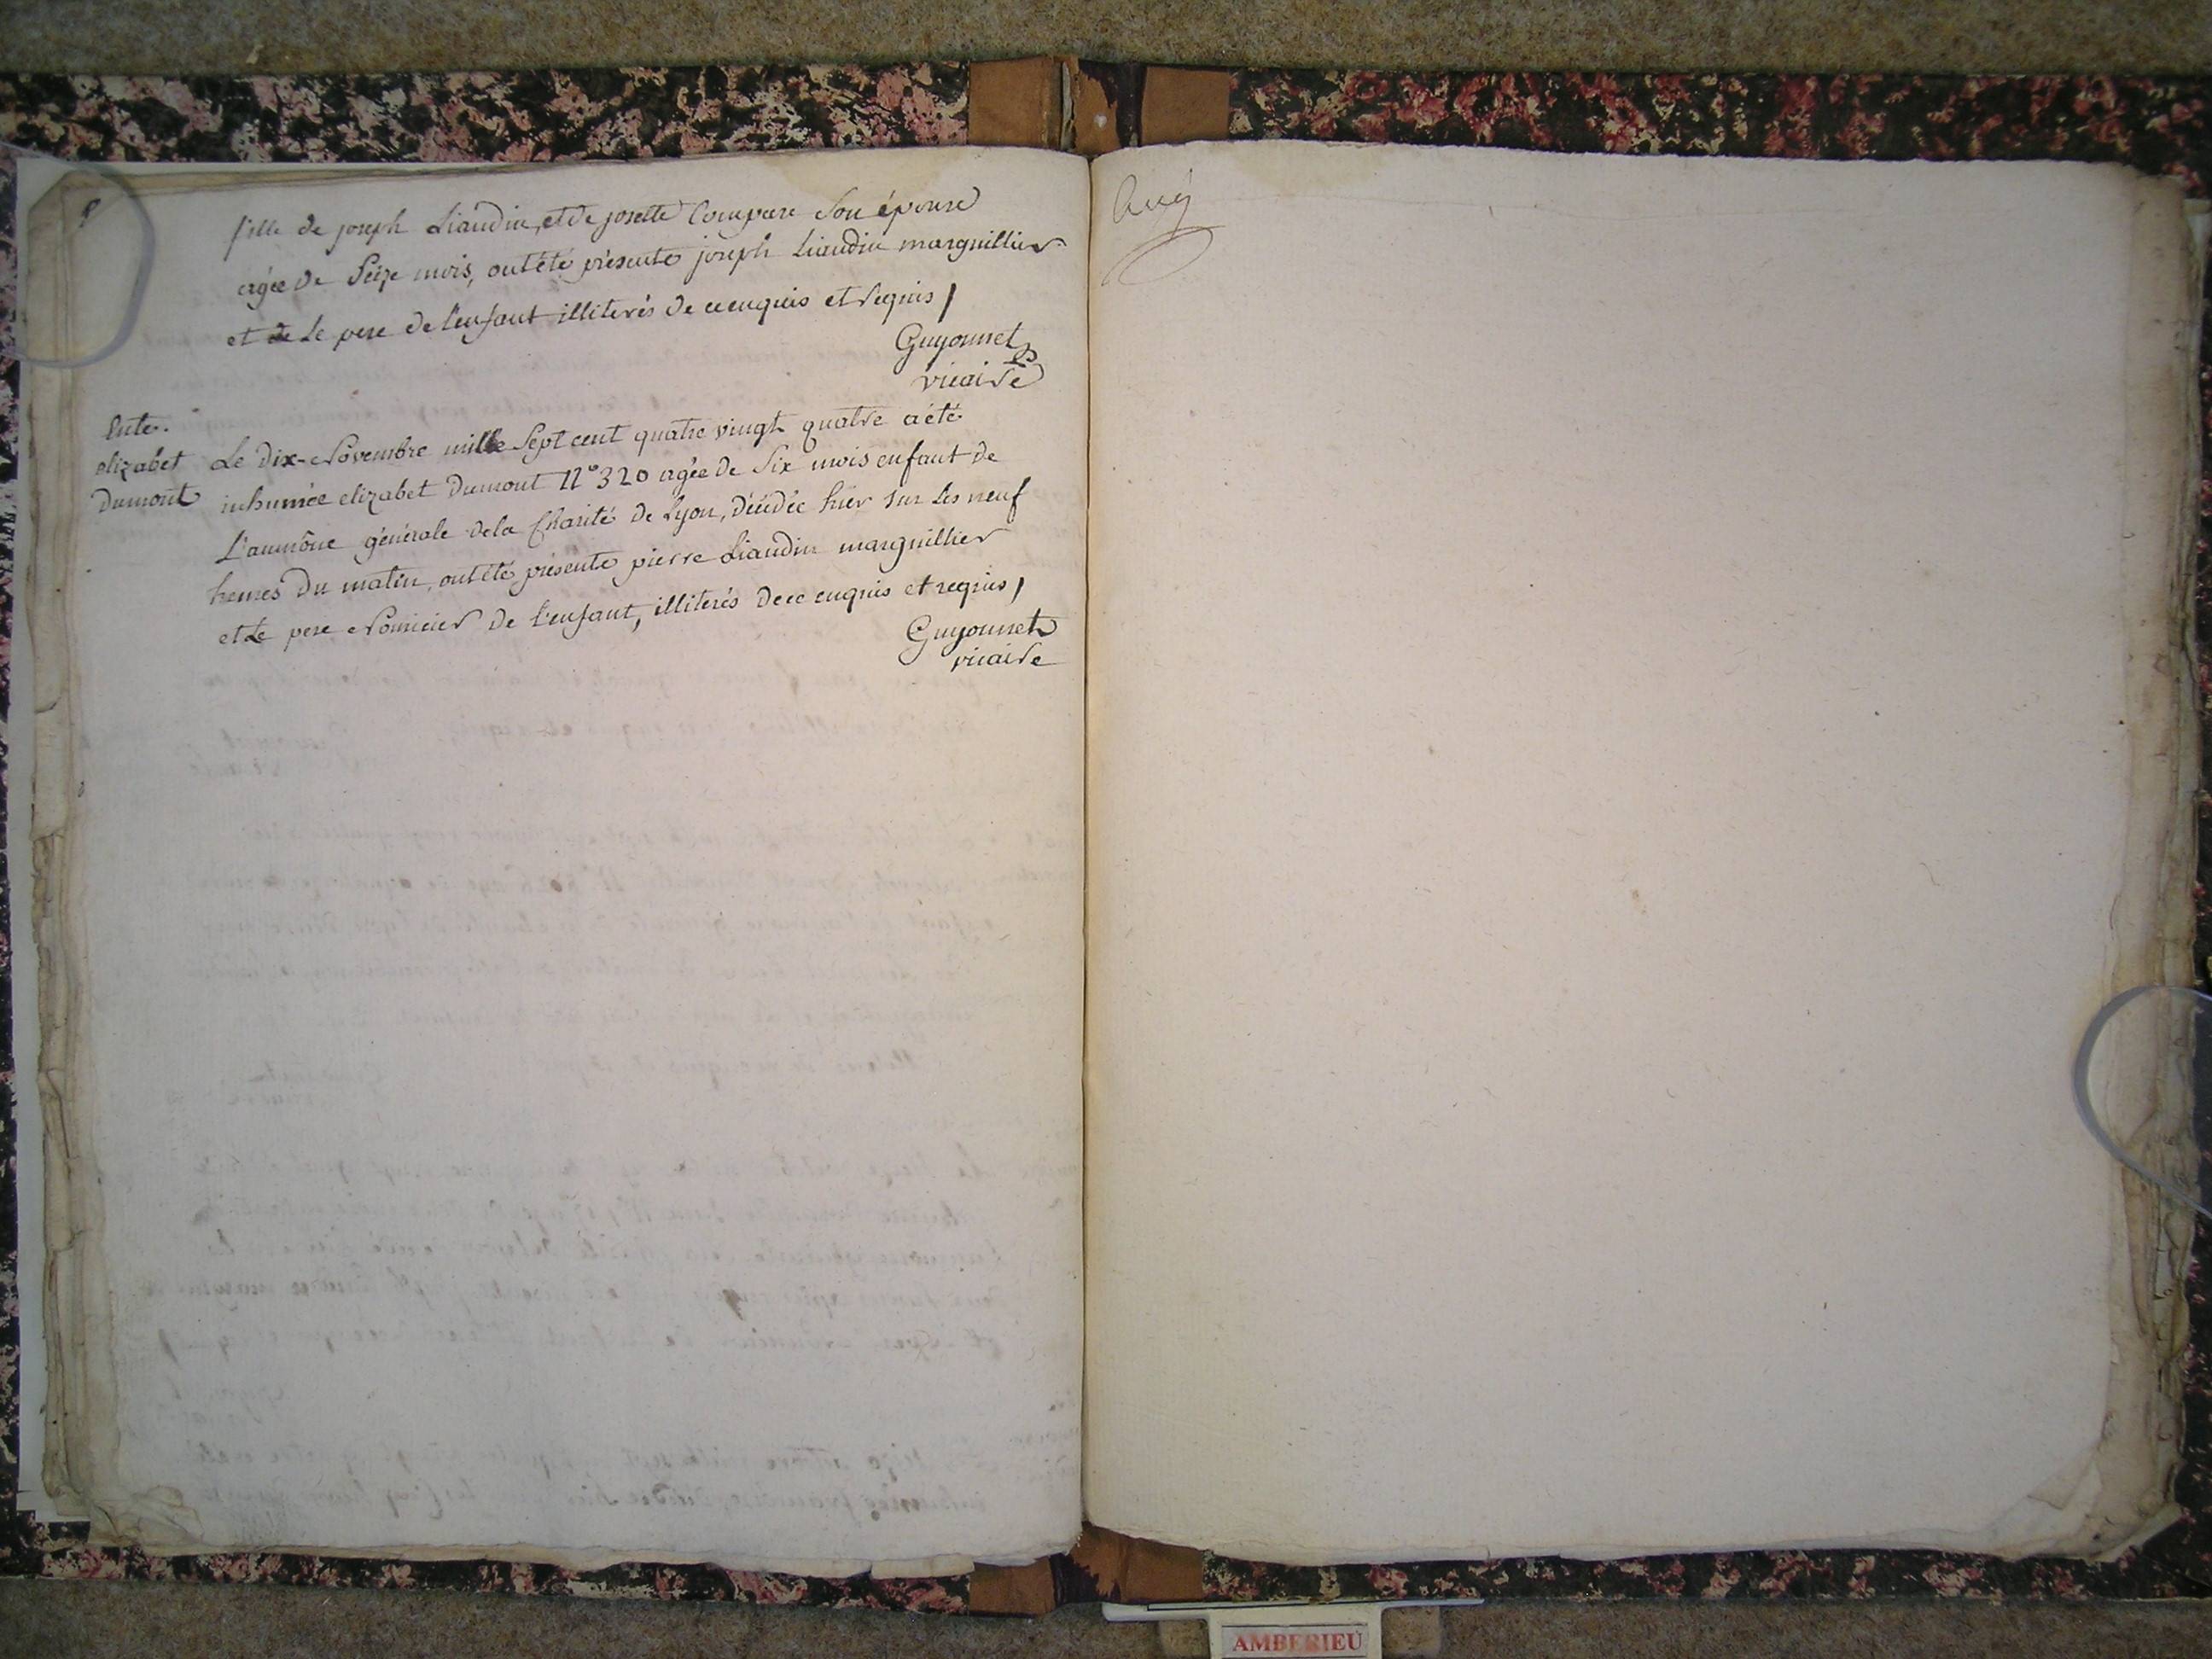 fille de joseph Liaudin, et de josette Compare Son épouse
agée de Seize mois, ont été présents joseph Liaudin marguillier
et de Le pere de l'enfant illiterés de ce enquis et requis /
Guyonnet
vicaire
Ente.
elizabet
Dumont
Le Dix-Novembre mille Sept cent quatre vingt quatre a été
inhumée elizabet Dumont N° 320 agée de Six mois enfant de
L'aumône générale de la Charité de Lyon, décédée hier sur Les neuf
heures Du matin, ont été présents pierre Liaudin marguillier
et Le pere Nouricier de l'enfant, illiterés de ce enquis et requis /
Guyonnet
vicaire
AMBERIEU